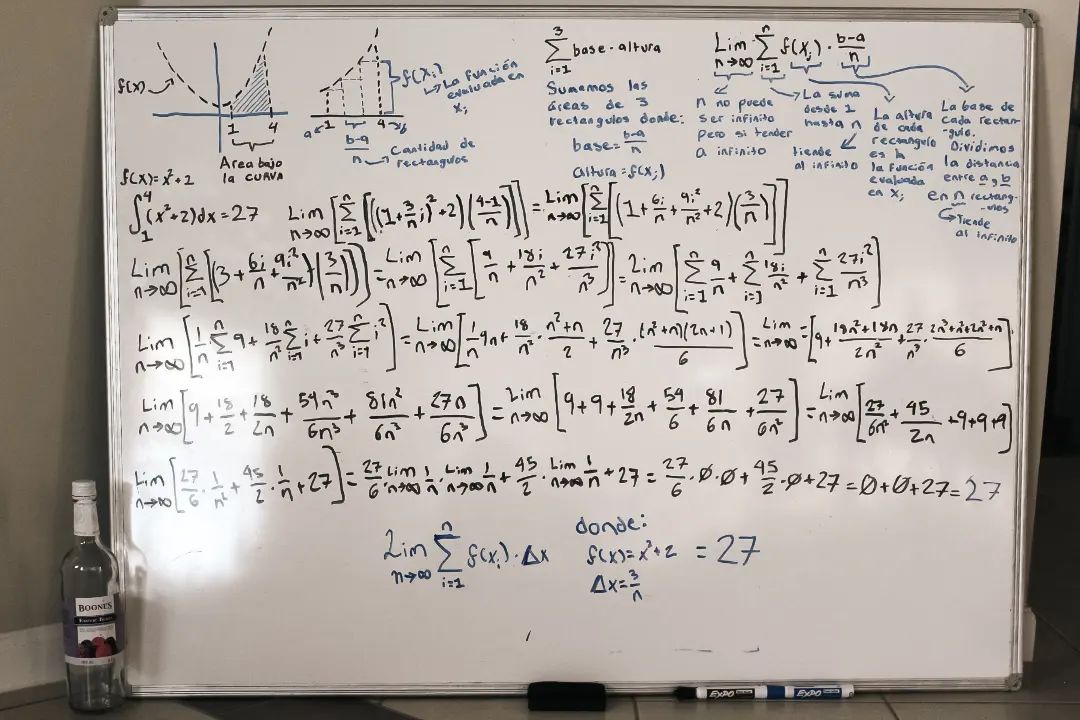 f(x)
1 4
Area bajo
la curva
f(x)=x²+2
f(xᵢ)
La función
evaluada en
xᵢ
a 1 4 b
b-a
n
Cantidad de
rectangulos
3
∑ base · altura
i=1
Sumamos las
áreas de 3
rectangulos donde:
base= b-a/n
altura = f(xᵢ)
Lim n→∞ ∑ i=1 n f(xᵢ) · b-a/n
n no puede
ser infinito
pero si tender
a infinito
La suma
desde 1
hasta n
tiende
al infinito
La altura
de cada
rectangulo
es la
función
evaluada
en Xᵢ
La base de
cada rectan-
gulo.
Dividimos
la distancia
entre a y b
en n rectang-
ulos
Tiende
al infinito
∫₁⁴ (x²+2)dx = 27
Lim n→∞ [∑ i=1 n [((1+3/n i)²+2)(4-1/n)]] = Lim n→∞ [∑ i=1 n [(1+6i/n+9i²/n²+2)(3/n)]]
Lim n→∞ [∑ i=1 n [(3+6i/n+9i²/n²)(3/n)]] = Lim n→∞ [∑ i=1 n [9/n+18i/n²+27i²/n³]] = Lim n→∞ [∑ i=1 n 9/n + ∑ i=1 n 18i/n² + ∑ i=1 n 27i²/n³]
Lim n→∞ [1/n ∑ i=1 n 9 + 18/n² ∑ i=1 n i + 27/n³ ∑ i=1 n i²] = Lim n→∞ [1/n 9n + 18/n² · n²+n/2 + 27/n³ · (n²+n)(2n+1)/6] = Lim n→∞ [9+ 18n²+18n/2n² + 27/n³ · 2n³+n²+2n²+n/6]
Lim n→∞ [9+18/2+18/2n+54n³/6n³+81n²/6n³+27n/6n³] = Lim n→∞ [9+9+18/2n+54/6+81/6n+27/6n²] = Lim n→∞ [27/6n²+45/2n+9+9+9]
Lim n→∞ [27/6 · 1/n² + 45/2 · 1/n + 27] = 27/6 · Lim n→∞ 1/n · Lim n→∞ 1/n + 45/2 · Lim n→∞ 1/n + 27 = 27/6 · 0 · 0 + 45/2 · 0 + 27 = 0+0+27 = 27
Lim n→∞ ∑ i=1 n f(xᵢ) · Δx
donde:
f(x)=x²+2
Δx=3/n
= 27
BOONE'S
EXPO
EXPO